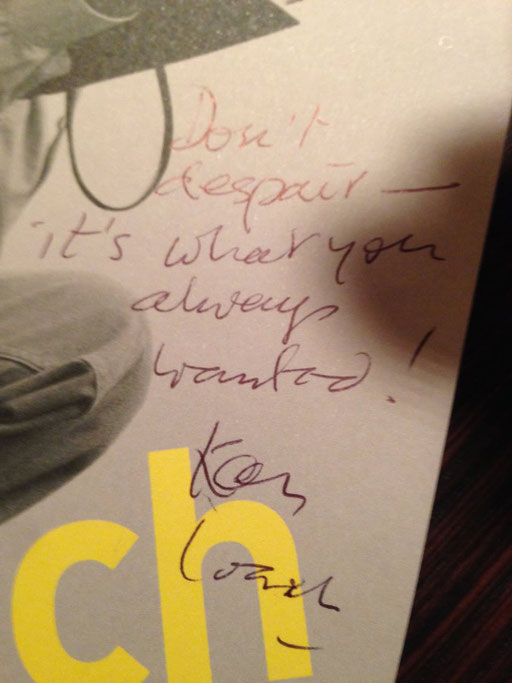 Don't
despair —
it's what you
always
wanted!
Ken
Loach
ch